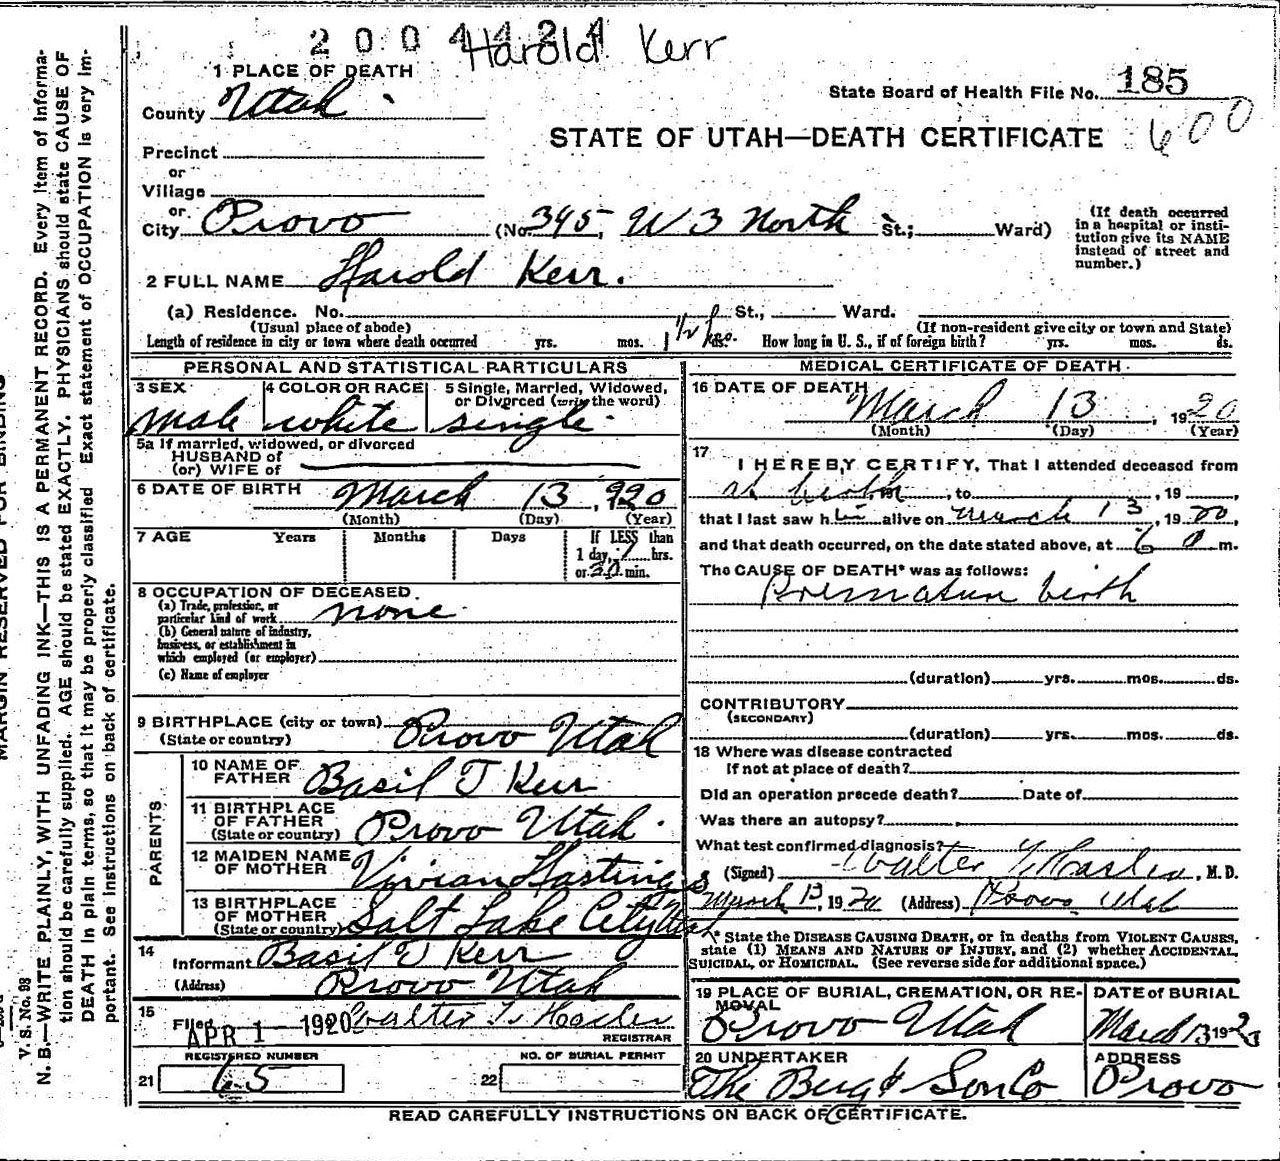 2004424
Harold Kerr
1 PLACE OF DEATH
County Utah
State Board of Health File No. 185
600
STATE OF UTAH—DEATH CERTIFICATE
Precinct
or
Village
or
City Provo (No. 345, W 3 North St.; Ward)
(If death occurred in a hospital or insti-
tution give its NAME instead of street and number.)
2 FULL NAME Harold Kerr.
(a) Residence. No. St., Ward.
(Usual place of abode) (If non-resident give city or town and State)
Length of residence in city or town where death occurred yrs. mos. 1½ hrs. ds. How long in U. S., if of foreign birth? yrs. mos. ds.
PERSONAL AND STATISTICAL PARTICULARS
3 SEX 4 COLOR OR RACE 5 Single, Married, Widowed, or Divorced (write the word)
male white single
5a If married, widowed, or divorced
HUSBAND of
(or) WIFE of
6 DATE OF BIRTH March 13, 1920
(Month) (Day) (Year)
7 AGE Years Months Days If LESS than
1 day, 1 hrs.
or 30 min.
8 OCCUPATION OF DECEASED
(a) Trade, profession, or
particular kind of work none
(b) General nature of industry,
business, or establishment in
which employed (or employer)
(c) Name of employer
9 BIRTHPLACE (city or town) Provo Utah
(State or country)
PARENTS
10 NAME OF FATHER Basil T Kerr
11 BIRTHPLACE OF FATHER Provo Utah.
(State or country)
12 MAIDEN NAME OF MOTHER Vivian Hastings
13 BIRTHPLACE OF MOTHER Salt Lake City Utah
(State or country)
14 Informant Basil T Kerr
(Address) Provo Utah
15 Filed APR 1 1920 Walter T. Hasler
REGISTRAR
REGISTERED NUMBER NO. OF BURIAL PERMIT
21 65 22
MEDICAL CERTIFICATE OF DEATH
16 DATE OF DEATH March 13, 1920
(Month) (Day) (Year)
17 I HEREBY CERTIFY, That I attended deceased from
at birth, to , 19 ,
that I last saw him alive on March 13, 1920,
and that death occurred, on the date stated above, at 6 m.
The CAUSE OF DEATH* was as follows:
Premature birth
(duration) yrs. mos. ds.
CONTRIBUTORY
(SECONDARY)
(duration) yrs. mos. ds.
18 Where was disease contracted
If not at place of death?
Did an operation precede death? Date of
Was there an autopsy?
What test confirmed diagnosis?
(Signed) Walter T. Hasler, M.D.
March 13, 1920 (Address) Provo Utah
* State the DISEASE CAUSING DEATH, or in deaths from VIOLENT CAUSES,
state (1) MEANS AND NATURE OF INJURY, and (2) whether ACCIDENTAL,
SUICIDAL, or HOMICIDAL. (See reverse side for additional space.)
19 PLACE OF BURIAL, CREMATION, OR RE-
MOVAL DATE of BURIAL
Provo Utah March 13 1920
20 UNDERTAKER ADDRESS
The Berg & Son Co Provo
READ CAREFULLY INSTRUCTIONS ON BACK OF CERTIFICATE.
MARGIN RESERVED FOR BINDING
V. S. No. 98
N. B.—WRITE PLAINLY, WITH UNFADING INK—THIS IS A PERMANENT RECORD. Every item of informa-
tion should be carefully supplied. AGE should be stated EXACTLY. PHYSICIANS should state CAUSE OF
DEATH in plain terms, so that it may be properly classified. Exact statement of OCCUPATION is very im-
portant. See instructions on back of certificate.